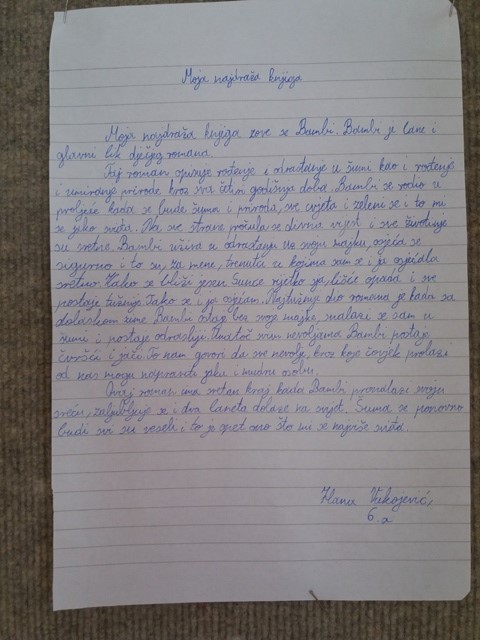 Moja najdraža knjiga
Moja najdraža knjiga zove se Bambi. Bambi je lane i
glavni lik dječjeg romana.
Taj roman opisuje rođenje i odrastanje u šumi kao i rođenje
i umiranje prirode kroz sva četiri godišnja doba. Bambi se rodio u
proljeće kada se bude šuma i priroda, sve cvjeta i zeleni se i to mi
se jako sviđa. Na sve strane pružila se divna svjest i sve životinje
su sretne. Bambi uživa u odrastanju uz svoju majku, osjeća se
sigurno i to su, za mene, trenutci u kojima sam se i ja osjećala
sretno. Kako se bliži jesen Sunce rijetko sja, lišće opada i sve
postaje tužnije. Tako se i ja osjećam. Najtužniji dio romana je kada sa
dolaskom zime Bambi ostaje bez svoje majke, snalazi se sam u
šumi i postaje odrasliji. Unatoč svim nevoljama Bambi postaje
čvršći i jači. To nam govori da sve nevolje, kroz koje čovjek prolazi
od nas mogu napraviti jaku i mudru osobu.
Ovaj roman ima sretan kraj kada Bambi pronalazi svoju
sreću, zaljubljuje se i dva laneta dolaze na svijet. Šuma se ponovno
budi svi su veseli i to je opet ono što mi se najviše sviđa.
Ilana Vukojević,
6.a